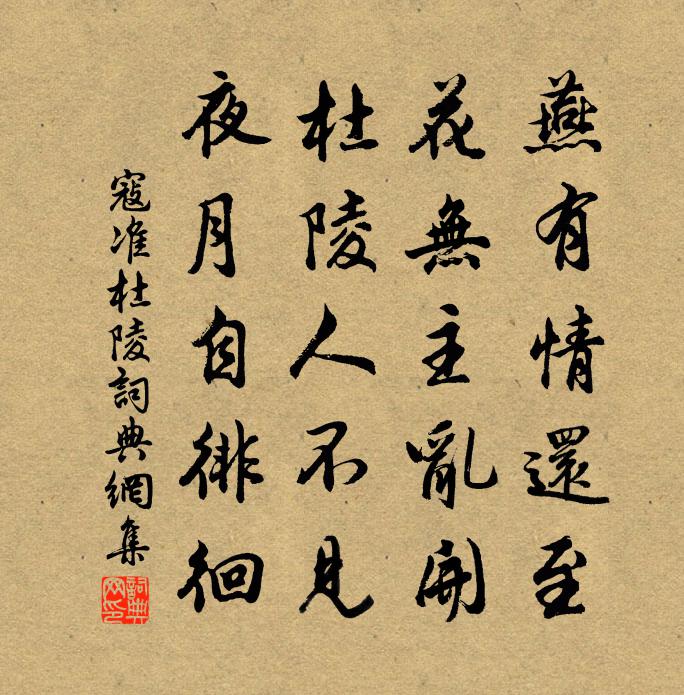 燕有情還至
花無主亂開
杜陵人不見
夜月自徘徊
寇准杜陵詞典網集
詞典網印